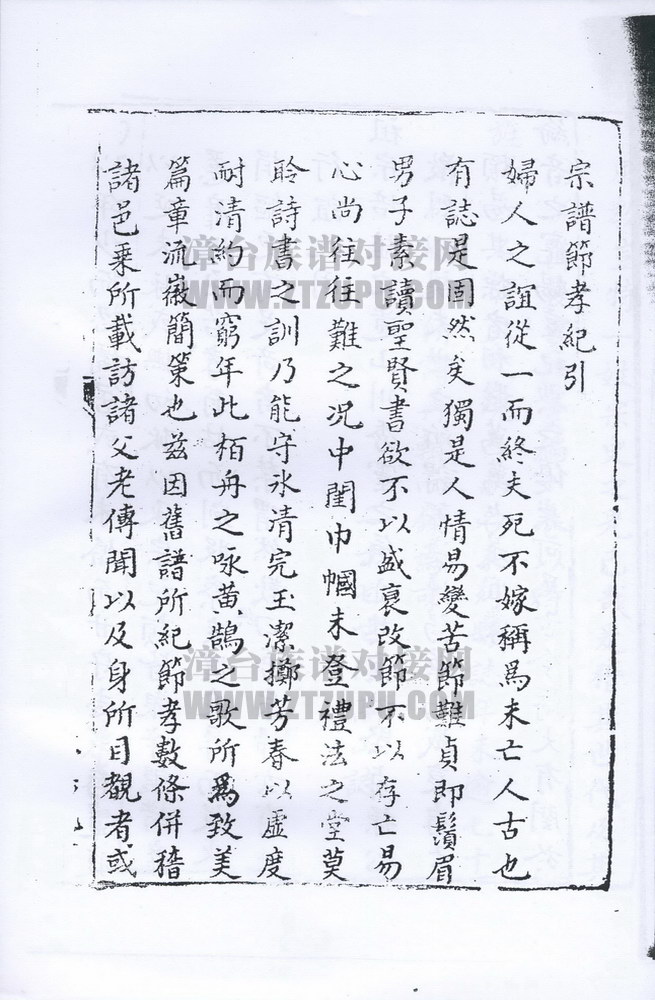 宗譜節孝紀引
婦人之誼從一而終夫死不嫁稱為未亡人古也
有誌是固然矣獨是人情易變苦節難貞即鬚眉
男子素讀聖賢書欲不以盛衰改節不以存亡易
心尚往往難之况中閨巾幗未登禮法之堂莫
聆詩書之訓乃能守氷清完玉潔擲芳春以虛度
耐清約而窮年此栢舟之咏黄鵠之歌所為致美
篇章流徽簡策也兹因舊譜所紀節孝數條併稽
諸邑乘所載訪諸父老傳聞以及身所目覩者或
漳台族谱对接网
WWW.ZTZUPU.COM
漳台族谱对接网
WWW.ZTZUPU.COM